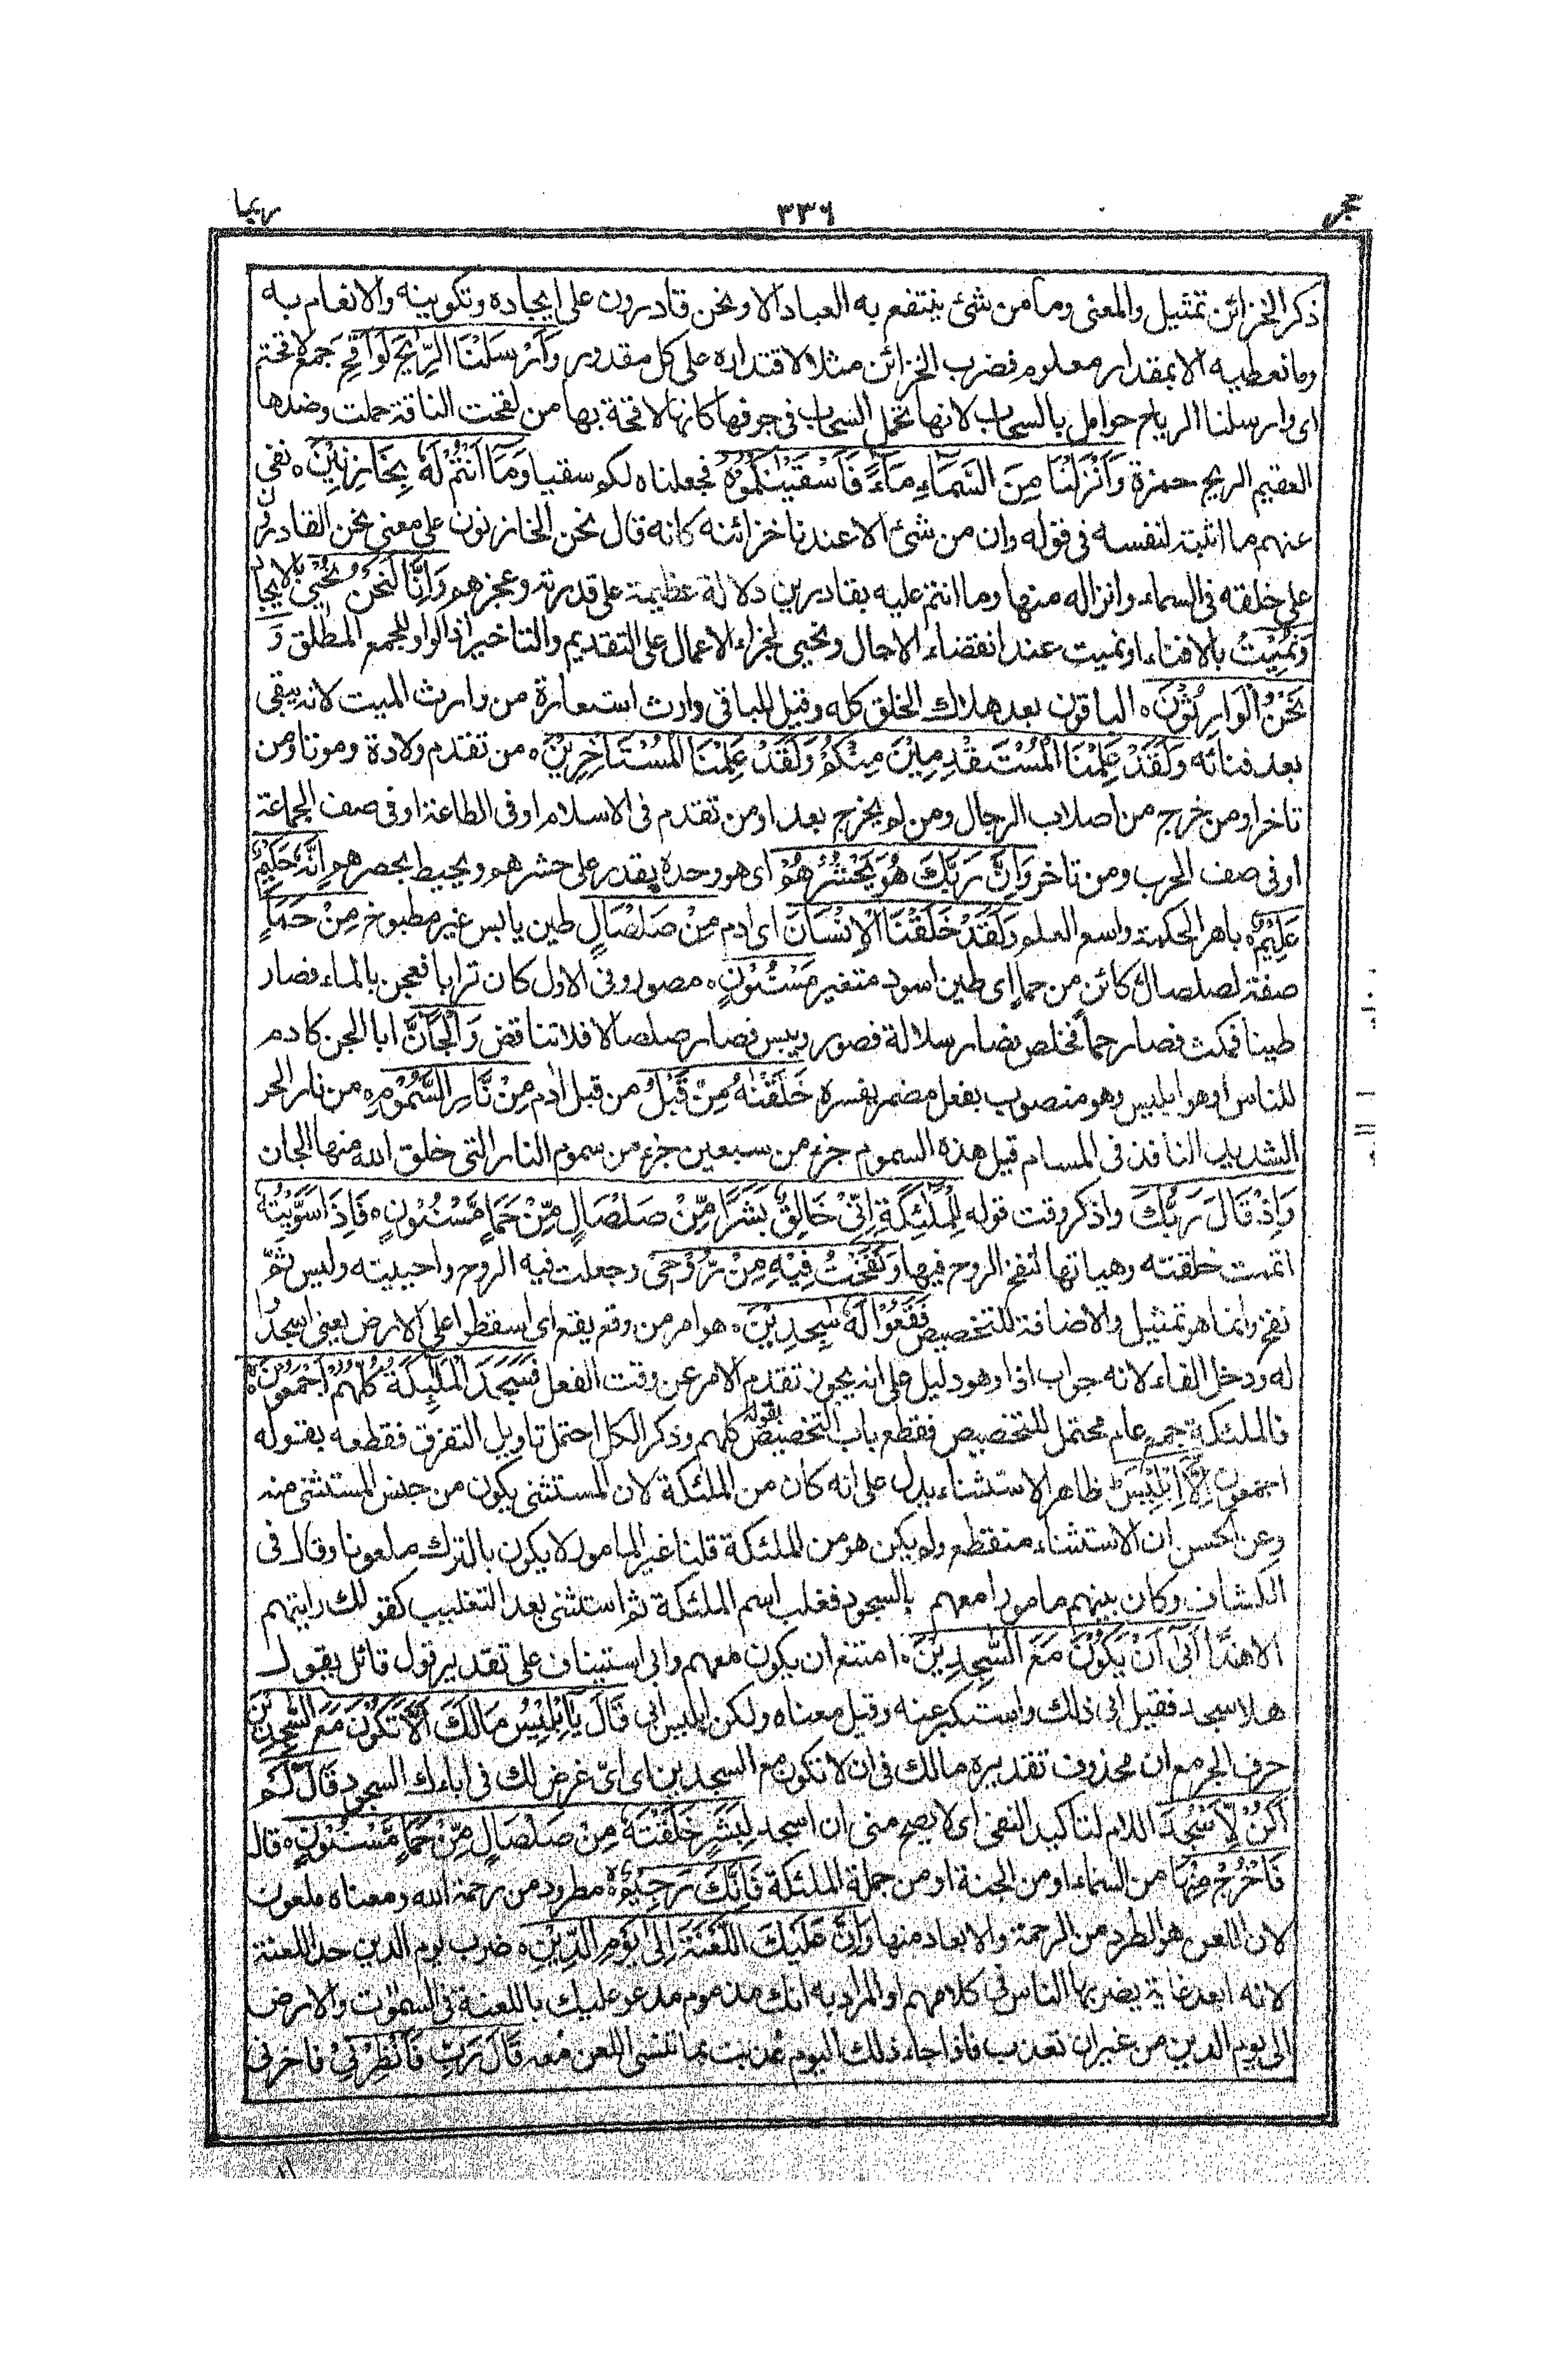 حجر ٣٣٦ ربما
ذكر الخزائن تمثيل والمعنى وما من شئ ينتفع به العباد الا ونحن قادرون على ايجاده وتكوينه والانعام به
وما نعطيه الا بمقدار معلوم فضرب الخزائن مثلا لاقتداره على كل مقدور وَاَرْسَلْنَا الرِّيٰحَ لَوَاقِحَ جمع لاقحة
اى وارسلنا الرياح حوامل بالسحاب لانها تحمل السحاب فى جوفها كانها لاقحة بها من لقحت الناقة حملت وضدها
العقيم الريح حمزة وَاَنْزَلْنَا مِنَ السَّمَاۤءِ مَاۤءً فَاَسْقَيْنٰكُمُوْهُ فجعلناه لكم سقيا وَمَاۤ اَنْتُمْ لَهٗ بِخَازِنِيْنَ ه نفى
عنهم ما اثبته لنفسه فى قوله وان من شئ الا عندنا خزائنه كانه قال نحن الخازنون على معنى نحن القادرون
على خلقه فى السماء وانزاله منها وما انتم عليه بقادرين دلالة عظيمة على قدرته وعجزهم وَاِنَّا لَنَحْنُ نُحْيٖ بالايجاد
وَنُمِيْتُ بالافناء او نميت عند انقضاء الاجال ونحيى لجزاء الاعمال على التقديم والتاخير اذ الواو للجمع المطلق وَ
نَحْنُ الْوَارِثُوْنَ ه الباقون بعد هلاك الخلق كله وقيل للباقى وارث استعارة من وارث الميت لانه يبقى
بعد فنائه وَلَقَدْ عَلِمْنَا الْمُسْتَقْدِمِيْنَ مِنْكُمْ وَلَقَدْ عَلِمْنَا الْمُسْتَاْخِرِيْنَ ه من تقدم ولادة وموتا ومن
تاخر او من خرج من اصلاب الرجال ومن لم يخرج بعد او من تقدم فى الاسلام او فى الطاعة او فى صف الجماعة
او فى صف الحرب ومن تاخر وَاِنَّ رَبَّكَ هُوَ يَحْشُرُهُمْ اى هو وحده يقدر على حشرهم ويحيط بحصرهم اِنَّهٗ حَكِيْمٌ
عَلِيْمٌ ه باهر الحكمة واسع العلم وَلَقَدْ خَلَقْنَا الْاِنْسَانَ اى ادم مِنْ صَلْصَالٍ طين يابس غير مطبوخ مِنْ حَمَاٍ
صفة لصلصال كائن من حماٍ اى طين اسود متغير مَسْنُوْنٍ ه مصور وفى الاول كان ترابا فعجن بالماء فصار
طينا فمكث فصار حمأ فخلص فصار سلالة فصور ويبس فصار صلصالا فلا تناقض وَالْجَآنَّ ابا الجن كادم
للناس او هو ابليس وهو منصوب بفعل مضمر يفسره خَلَقْنٰهُ مِنْ قَبْلُ من قبل ادم مِنْ نَّارِ السَّمُوْمِ ه من نار الحر
الشديد النافذ فى المسام قيل هذه السموم جزء من سبعين جزء من سموم النار التى خلق الله منها الجان
وَاِذْ قَالَ رَبُّكَ واذكر وقت قوله لِلْمَلٰٓئِكَةِ اِنِّىْ خَالِقٌ بَشَرًا مِّنْ صَلْصَالٍ مِّنْ حَمَاٍ مَّسْنُوْنٍ ه فَاِذَا سَوَّيْتُهٗ
اتممت خلقته وهياتها لنفخ الروح فيها وَنَفَخْتُ فِيْهِ مِنْ رُّوْحِىْ وجعلت فيه الروح واحييته وليس ثَمَّ
نفخ وانما هو تمثيل والاضافة للتخصيص فَقَعُوْا لَهٗ سٰجِدِيْنَ ه هو امر من وقع يقع اى اسقطوا على الارض يعنى اسجدوا
له ودخل الفاء لانه جواب اذا وهو دليل على انه يجوز تقدم الامر عن وقت الفعل فَسَجَدَ الْمَلٰٓئِكَةُ كُلُّهُمْ اَجْمَعُوْنَ ه
فالملئكة جمع عام محتمل للتخصيص فقطع باب التخصيص بقوله كلهم وذكر الكل احتمل تاويل التفرق فقطعه بقوله
اجمعون اِلَّاۤ اِبْلِيْسَ ظاهر الاستثناء يدل على انه كان من الملئكة لان المستثنى يكون من جنس المستثنى منه
وعن الحسن ان الاستثناء منقطع ولم يكن هو من الملئكة قلنا غير المامور لا يكون بالترك ملعونا وقال فى
الكشاف وكان بينهم مامورا معهم بالسجود فغلب اسم الملئكة ثم استثنى بعد التغليب كقولك رايتهم
الا هندا اَبٰۤى اَنْ يَّكُوْنَ مَعَ السّٰجِدِيْنَ ه امتنع ان يكون معهم وابى استيناف على تقدير قول قائل يقول
هلا سجد فقيل ابى ذلك واستكبر عنه وقيل معناه ولكن ابليس ابى قَالَ يٰۤاِبْلِيْسُ مَالَكَ اَلَّا تَكُوْنَ مَعَ السّٰجِدِيْنَ
حرف الجر مع ان محذوف تقديره مالك فى ان لا تكون مع السجدين اى اىّ غرض لك فى اباءك السجود قَالَ لَمْ
اَكُنْ لِّاَسْجُدَ اللام لتاكيد النفى اى لا يصح منى ان اسجد لِبَشَرٍ خَلَقْتَهٗ مِنْ صَلْصَالٍ مِّنْ حَمَاٍ مَّسْنُوْنٍ ه قال
فَاخْرُجْ مِنْهَا من السماء او من الجنة او من جملة الملئكة فَاِنَّكَ رَجِيْمٌ ه مطرود من رحمة الله ومعناه ملعون
لان اللعن هو الطرد من الرحمة والابعاد منها وَاِنَّ عَلَيْكَ اللَّعْنَةَ اِلٰى يَوْمِ الدِّيْنِ ه ضرب يوم الدين حد اللعنة
لانه ابعد غاية يضربها الناس فى كلامهم او المراد به انك مذموم مدعو عليك باللعنة فى السموت والارض
الى يوم الدين من غير ان تعذب فاذا جاء ذلك اليوم عذبت بما تنسى اللعن معه قَالَ رَبِّ فَاَنْظِرْنِىْ فاخرنى